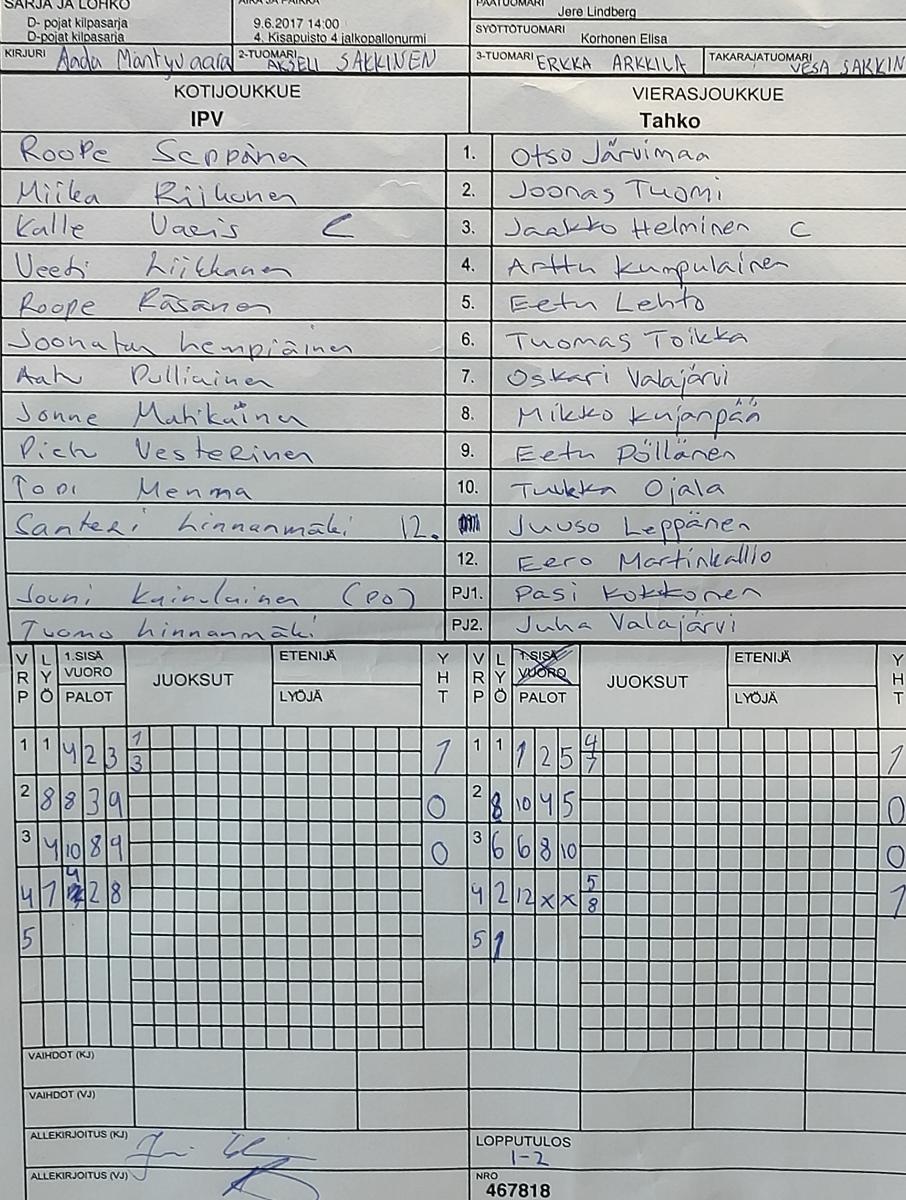 SARJA JA LOHKO
D- pojat kilpasarja
D-pojat kilpasarja
AIKA JA PAIKKA
9.6.2017 14:00
4. Kisapuisto 4 jalkopallonurmi
PÄÄTUOMARI
Jere Lindberg
SYÖTTÖTUOMARI
Korhonen Elisa
KIRJURI Aada Mäntyvaara
2-TUOMARI AKSELI SAKKINEN
3-TUOMARI ERKKA ARKKILA
TAKARAJATUOMARI VESA SAKKIN
KOTIJOUKKUE
IPV
VIERASJOUKKUE
Tahko
Roope Seppänen 1. Otso Järvimaa
Miika Riikonen 2. Joonas Tuomi
Kalle Varis C 3. Jaakko Helminen C
Veeti Liikkanen 4. Arttu Kumpulainen
Roope Räsänen 5. Eetu Lehto
Joonatan Lempiäinen 6. Tuomas Toikka
Aatu Pulliainen 7. Oskari Valajärvi
Jonne Matikainen 8. Mikko Kujanpää
Vesterinen 9. Eetu Pöllänen
Topi Menma 10. Tuukka Ojala
Santeri Linnanmäki 12. Juuso Leppänen
12. Eero Martinkallio
Jouni Kainulainen (PO) PJ1. Pasi Kokkonen
Tuomo Linnanmäki PJ2. Juha Valajärvi
VRP LYÖ 1.SISÄ VUORO PALOT JUOKSUT ETENIJÄ LYÖJÄ YHT VRP LYÖ 1.SISÄ VUORO PALOT JUOKSUT ETENIJÄ LYÖJÄ YHT
1 1 4 2 3 1 3 1 1 1 1 2 5 4 7 1
2 8 8 3 9 0 2 8 10 4 5 0
3 4 10 8 9 0 3 6 6 8 10 0
4 1 4 2 8 4 2 12 x x 5 8 1
5 5 1
VAIHDOT (KJ)
VAIHDOT (VJ)
ALLEKIRJOITUS (KJ)
LOPPUTULOS
1-2
ALLEKIRJOITUS (VJ)
NRO
467818